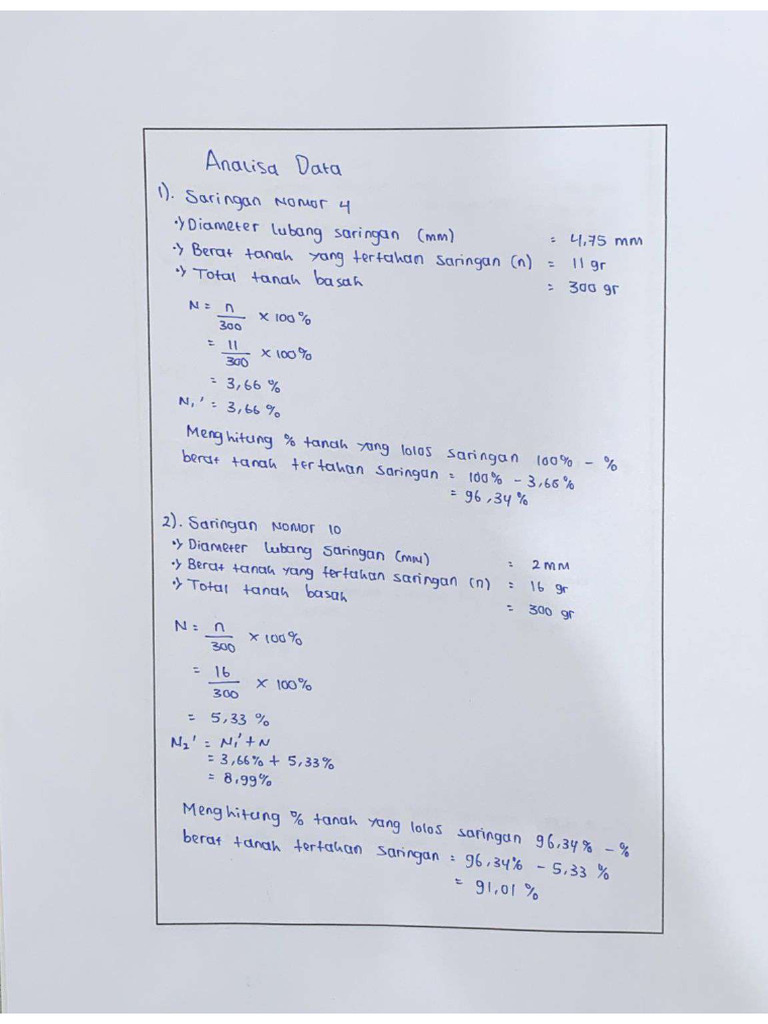 Analisa Data
1). Saringan Nomor 4
·) Diameter lubang saringan (mm) = 4,75 mm
·) Berat tanah yang tertahan saringan (n) = 11 gr
·) Total tanah basah = 300 gr
N = n/300 × 100%
= 11/300 × 100%
= 3,66 %
N₁' = 3,66 %
Menghitung % tanah yang lolos saringan 100% - %
berat tanah tertahan saringan = 100% - 3,66%
= 96,34 %
2). Saringan Nomor 10
·) Diameter lubang saringan (mm) = 2 mm
·) Berat tanah yang tertahan saringan (n) = 16 gr
·) Total tanah basah = 300 gr
N = n/300 × 100%
= 16/300 × 100%
= 5,33 %
N₂' = N₁' + N
= 3,66% + 5,33%
= 8,99%
Menghitung % tanah yang lolos saringan 96,34% - %
berat tanah tertahan saringan = 96,34% - 5,33 %
= 91,01 %